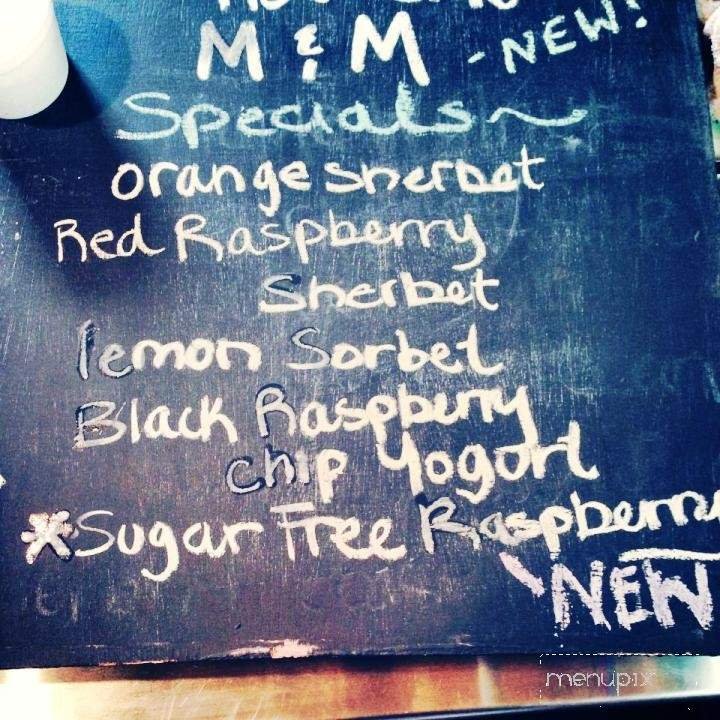 M & M - NEW!
Specials~
orange sherbet
Red Raspberry
Sherbet
lemon Sorbet
Black Raspberry
chip Yogurt
*Sugar Free Raspberry
NEW
menupix